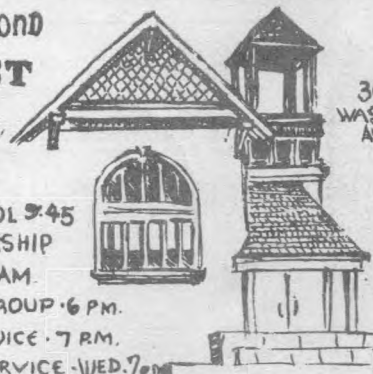 OND
ST
30
WAS
A
OL 9:45
SHIP
AM
ROUP · 6 PM.
VICE · 7 P.M.
RVICE · WED. 7 PM